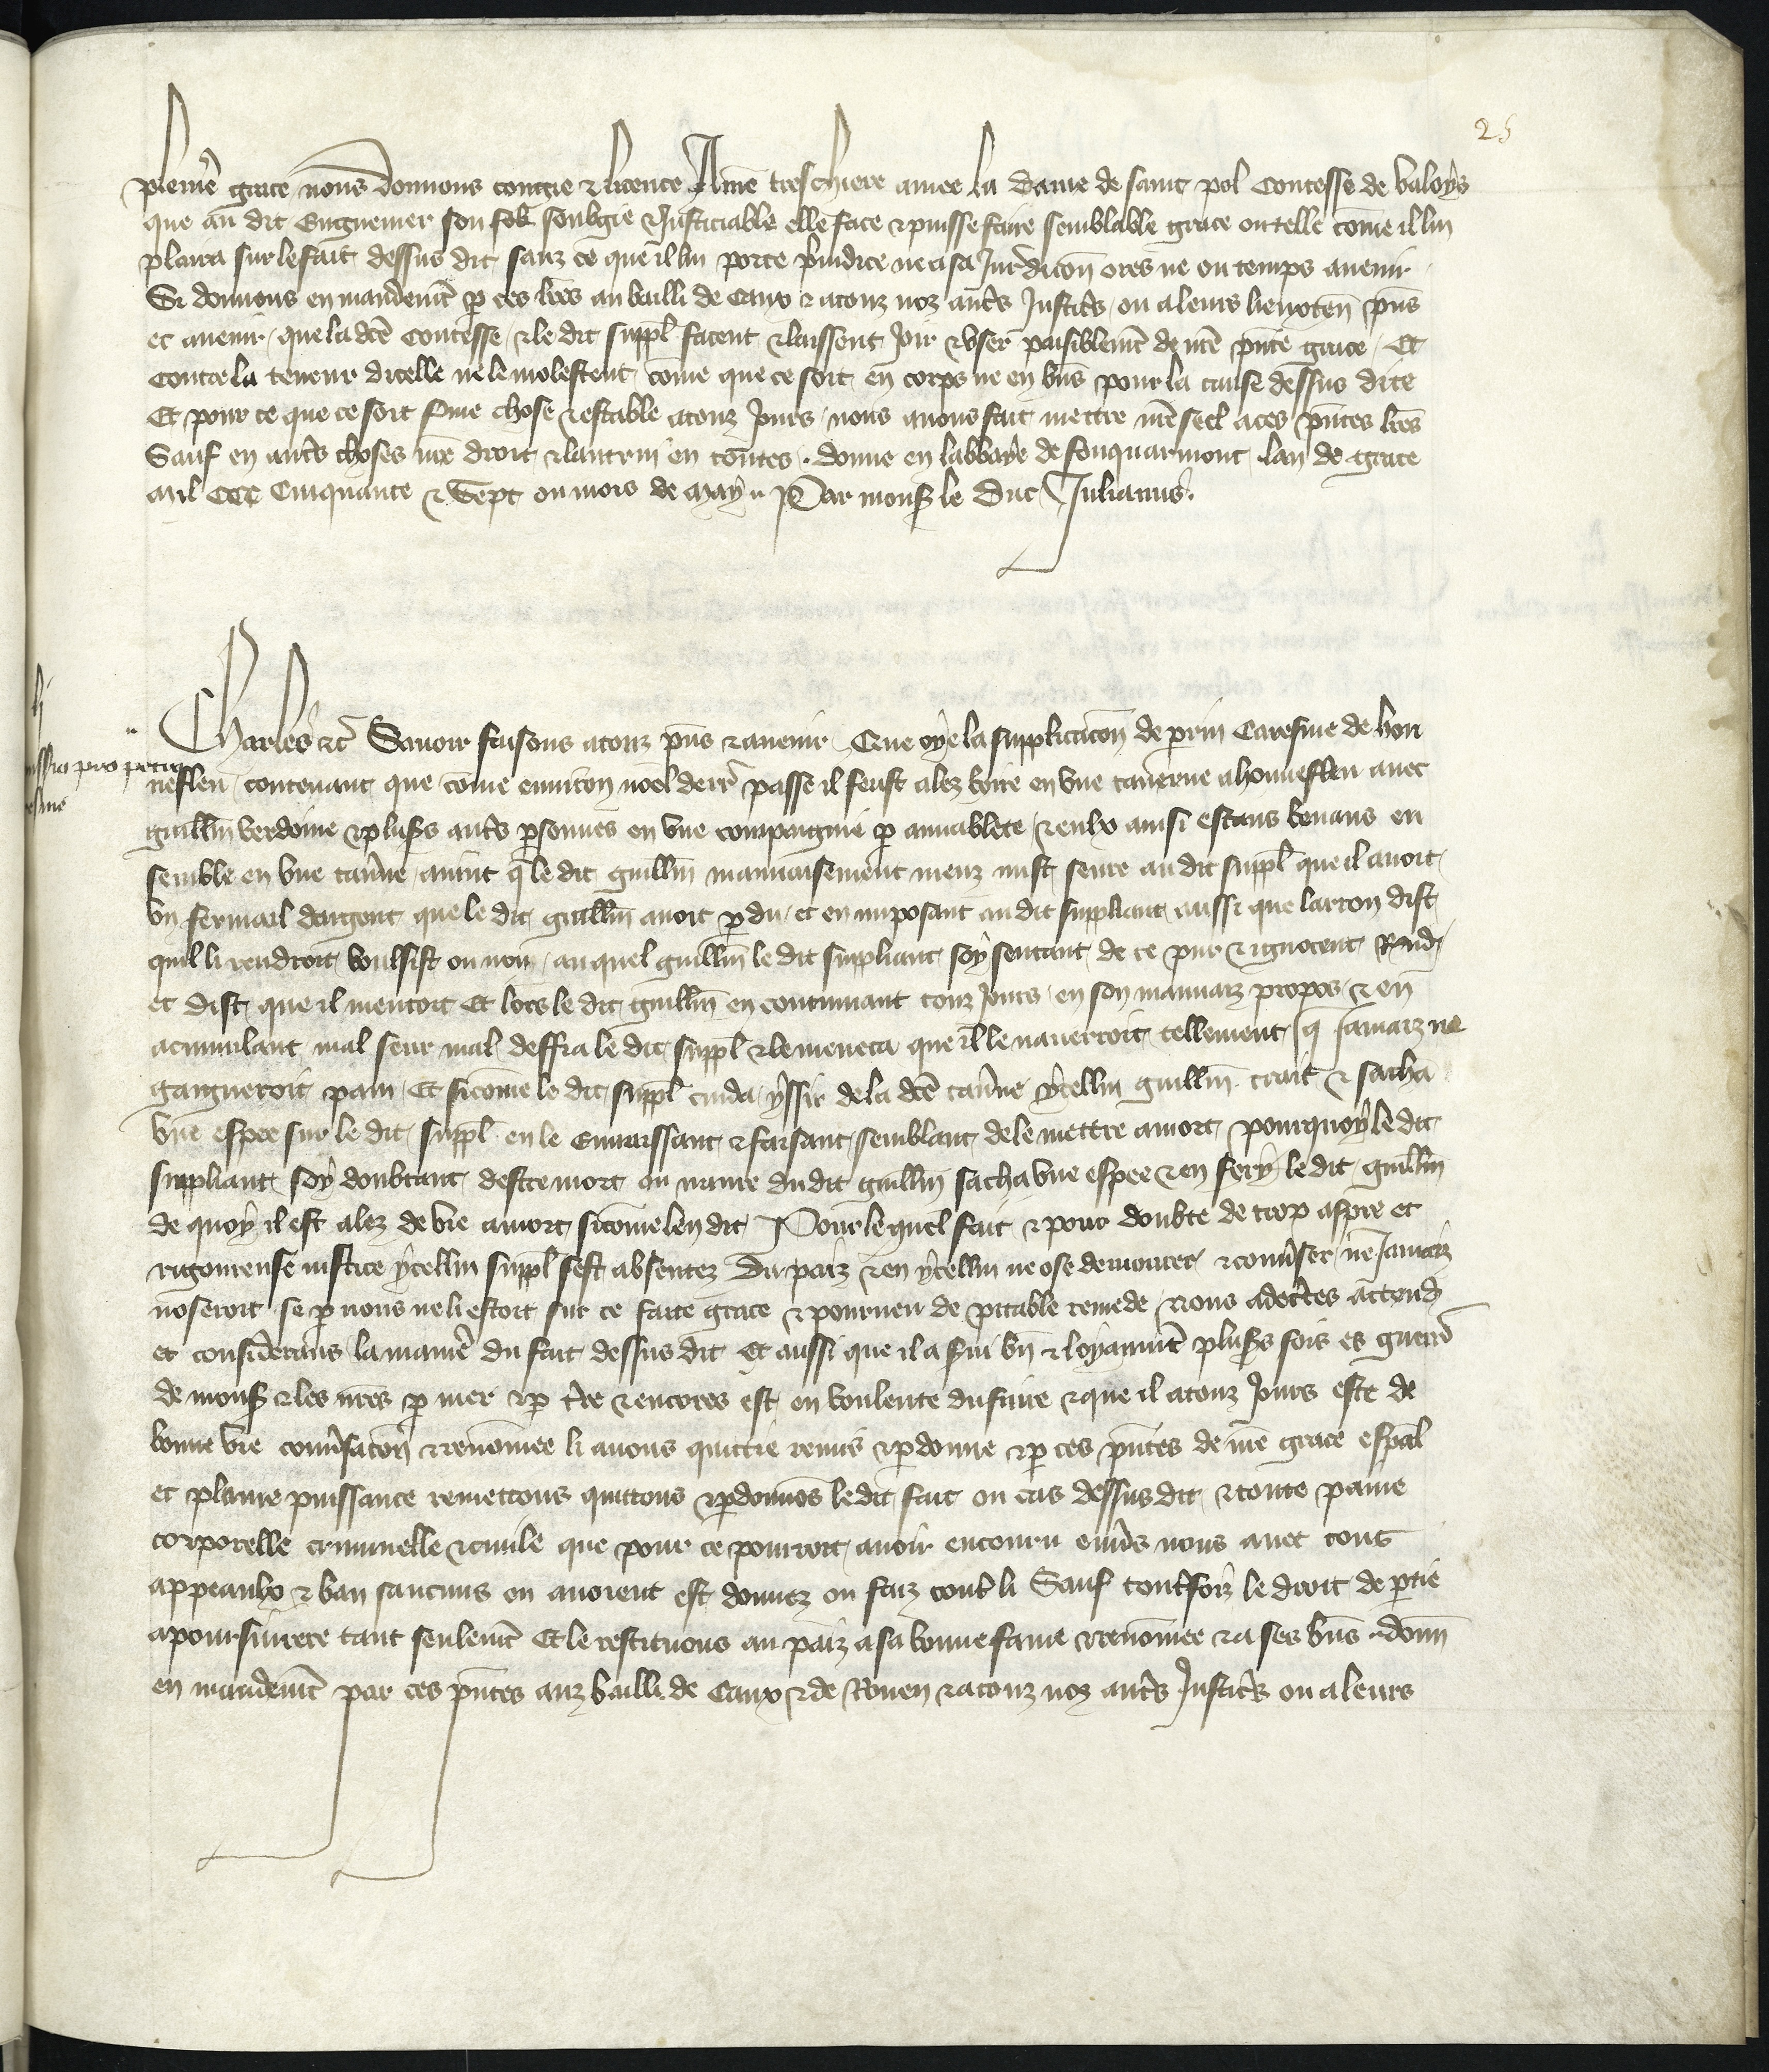 25
plenie᷑ grace nous donnons congie & licence A n̄re treschiere amee la dame de saint pol Contesse de Valoys
que au dit Enguenier son sob̄ soubgie & Justiciable elle face & puisse faire semblable grace ou telle com̄e il lui
plaira sur le fait dessus dit sanz ce que il lui porte preiudice ne a sa Jurdicōn ores ne ou temps auenir
Si donnons en mandemēt p ces lr̄es au bailli de Caux & a touz noz autˢ Justicˢ ou a leurs lieuxten̄ pn̄s
et auenir que la dc̄e Contesse & le dit suppl̄ facent & laissent joir & vser paisiblemēt de n̄re pn̄te grace Et
contre la teneur dicelle ne le molestent com̄e que ce soit en corps ne en bn̄s pour la cause dessus dite
Et pour ce que ce soit ferme chose & estable a touz jours nous auons fait mettre n̄re seel a ces pn̄tes lr̄es
Sauf en autˢ choses n̄re droit & lautrui en toutes. donne en labbaye de fouquarmont lan de grace
mil CCC Cinquante & Sept ou mois de may.. Par monss le Duc Julianus.
Charles &c̄ Sauoir faisons a touz pn̄s & auenir Que oye la supplicacōn de perrin Caresme de hon
nefleu contenant que com̄e enuiron noel derr̄ passe il feust alez boire en vne tauerne a honnefleu auec
guillm̄ verdoine & plusˢ autˢ psonnes en vne compaignie p amiablete & eulx ainsi estans beuans en
semble en vne tau̓ne auint q̄ le dit guillm̄ mauuaisement menz mist seure au dit suppl̄ que il auoit
vn fermail dargent que le dit guillm̄ auoit pdu et en imposant au dit suppliant aussi que larron dist
quil li rendroit voulsist ou non auquel guillm̄ le dit suppliant soy sentant de ce pur & ignocent Rnd̓
et dist que il mentoit Et lors le dit guillm̄ en continuant touz jours en son mauuaiz propos & en
acumulant mal seur mal deffia le dit suppl̄ & le meneca que il le naurerroit tellement q̄ jamaiz ne
gaigneroit pain Et sicom̄e le dit suppl̄ cuida yssir de la dc̄e tau̓ne ycellui guillm̄ trait & sacha
vne espee sur le dit suppl̄ en le enuaissant & faisant semblant de le mettre a mort pourquoy le dit
suppliant soy doubtant destre mort ou naure du dit guillm̄ sacha vne espee & en fery le dit guillm̄
de quoy il est alez de vie a mort sicom̄e len dit Pour le quel fait & pour doubte de trop aspre et
rigoureuse iustice ycellui suppl̄ sest absentez du paiz & en ycellui ne ose demourer & conu̓ser ne jamaiz
noseroit se p nous ne li estoit sur ce faite grace & pourueu de pitable remede Nous adec̓tes attend̓
et considerans la manie᷑ du fait dessus dit Et aussi que il a s̓ui bn̄ & loyaumēt plusˢ fois es guerr̄
de monss & les n̄res p mer & p t̓re & encores est en voulente du faire & que il a touz jours este de
bonne vie conu̓sacōn & renom̄ee li auons quittie remis & pdonne & p ces pn̄tes de n̄re grace esp̄al
et plaine puissance remettons quittons & pdonnōs le dit fait ou cas dessus dit & toute paine
corporelle criminelle & ciuile que pour ce pourroit auoir encouru enu̓s nous auec touˢ
appeaulx & ban saucuns en auoient est donnez ou faiz contˢ li Sauf toutˢfoiz le droit de ptie
a poursuirre tant seulemēt Et le restituons au paiz a sa bonne fame & renom̄ee & a ses bn̄s .. donn̄
en mandemēt par ces pn̄tes auz bailli de Caux & de Rouen & a touz noz autˢ Justicˢ ou a leurs